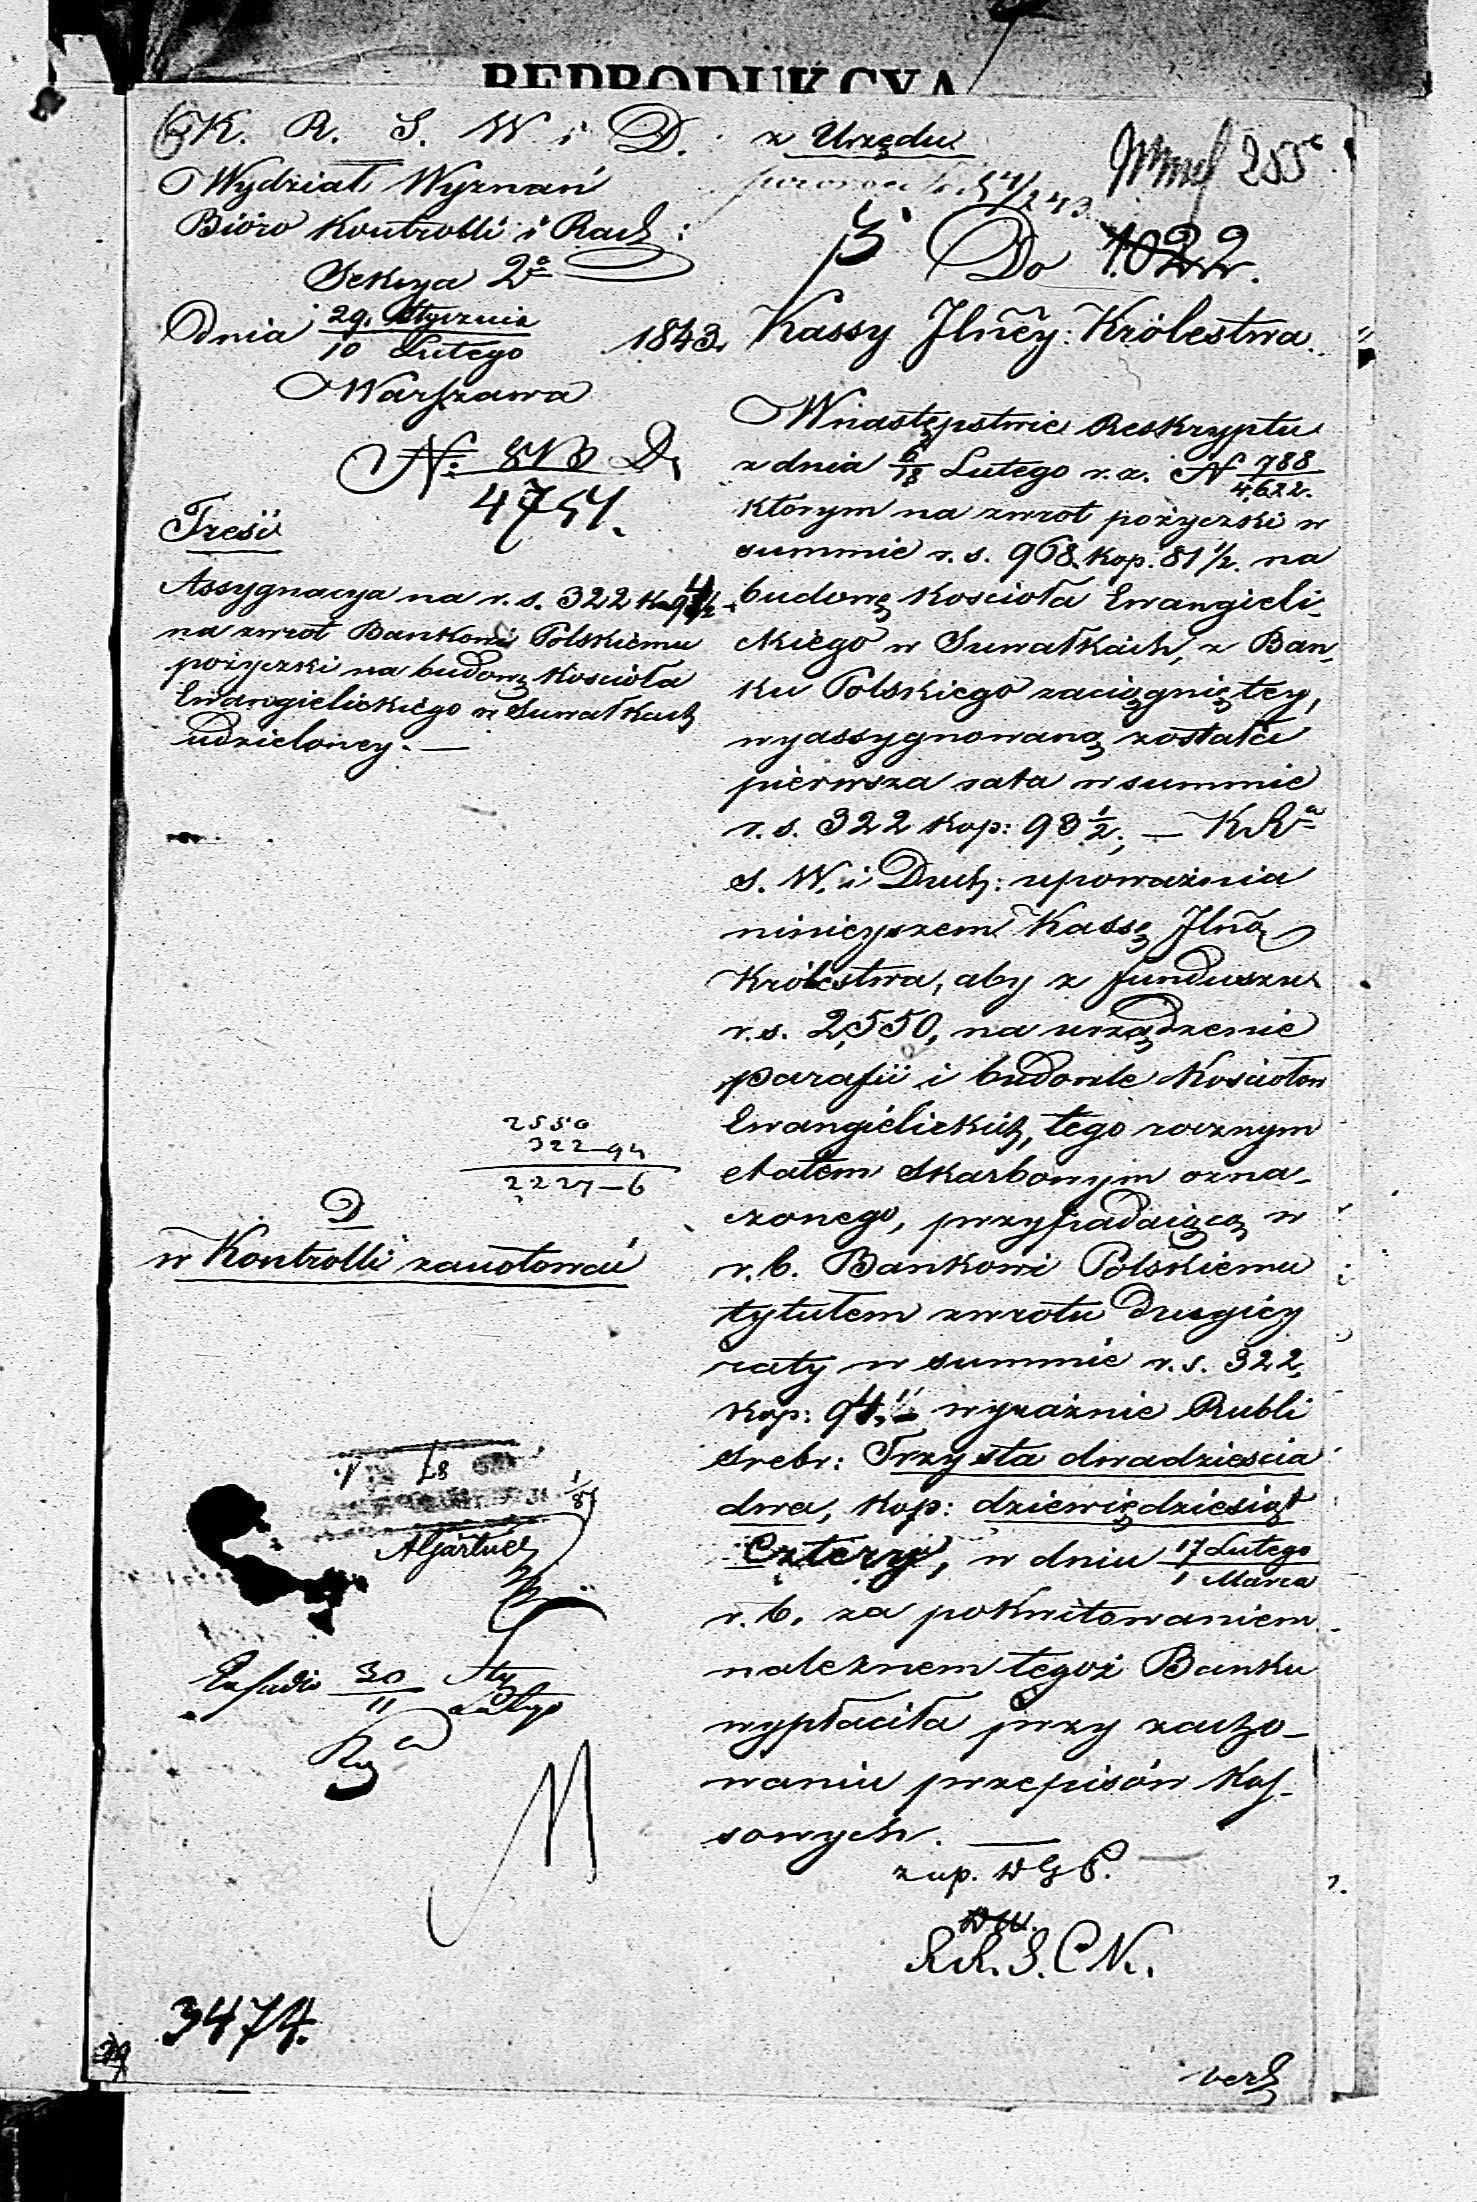 REPRODUKCYA
K. R. S. W i D. z Urzędu
Wydział Wyznań
Bióro Kontrolli i Rach:
Sekcya 2a
Dnia 29. Stycznia / 10 Lutego 1843.
Warszawa
N: 813 D. / 4751.
Treść
Assygnacya na r. s. 322 k. 94
na zwrot Bankowi Polskiemu
pożyczki na budowę Kościoła
Ewangielickiego w Suwałkach
udzieloney. —
2550
322-94
2227-6
D
w Kontrolli zanotować
30 Sty / 11 Lutego
3474.
255
Do 1022.
Kassy Jlney: Królestwa
W następstwie Reskryptu
z dnia 6/18 Lutego r. z. N 788/4,622.
którym na zwrot pożyczki w
summie r. s. 968. kop. 81 1/2. na
budowę Kościoła Ewangieli-
ckiego w Suwałkach, z Ban-
ku Polskiego zaciągniętey,
wyassygnowaną została
pierwsza rata w summie
r. s. 322 kop: 93 1/2, — K R a
S. W. i Duch: upoważnia
ninieyszem Kassę Jlną
Królestwa, aby z funduszu
r. s. 2,550, na urządzenie
parafii i budowle Kościołow
Ewangielickich, tego rocznym
etatem Skarbowym ozna-
czonego, przypadaiącą w
r. b. Bankowi Polskiemu
tytułem zwrotu drugiey
raty w summie r. s. 322,
kop: 94, wyraźnie Rubli
srebr: Trzysta dwadzieścia
dwa, kop: dziewięćdziesiąt
Cztery, w dniu 17 Lutego / 1 Marca
r. b. za pokwitowaniem
należnem tegoż Banku
wypłaciła przy zacho-
waniu przepisów Kas-
sowych. —
zup.
R. R. S. C N.
vert